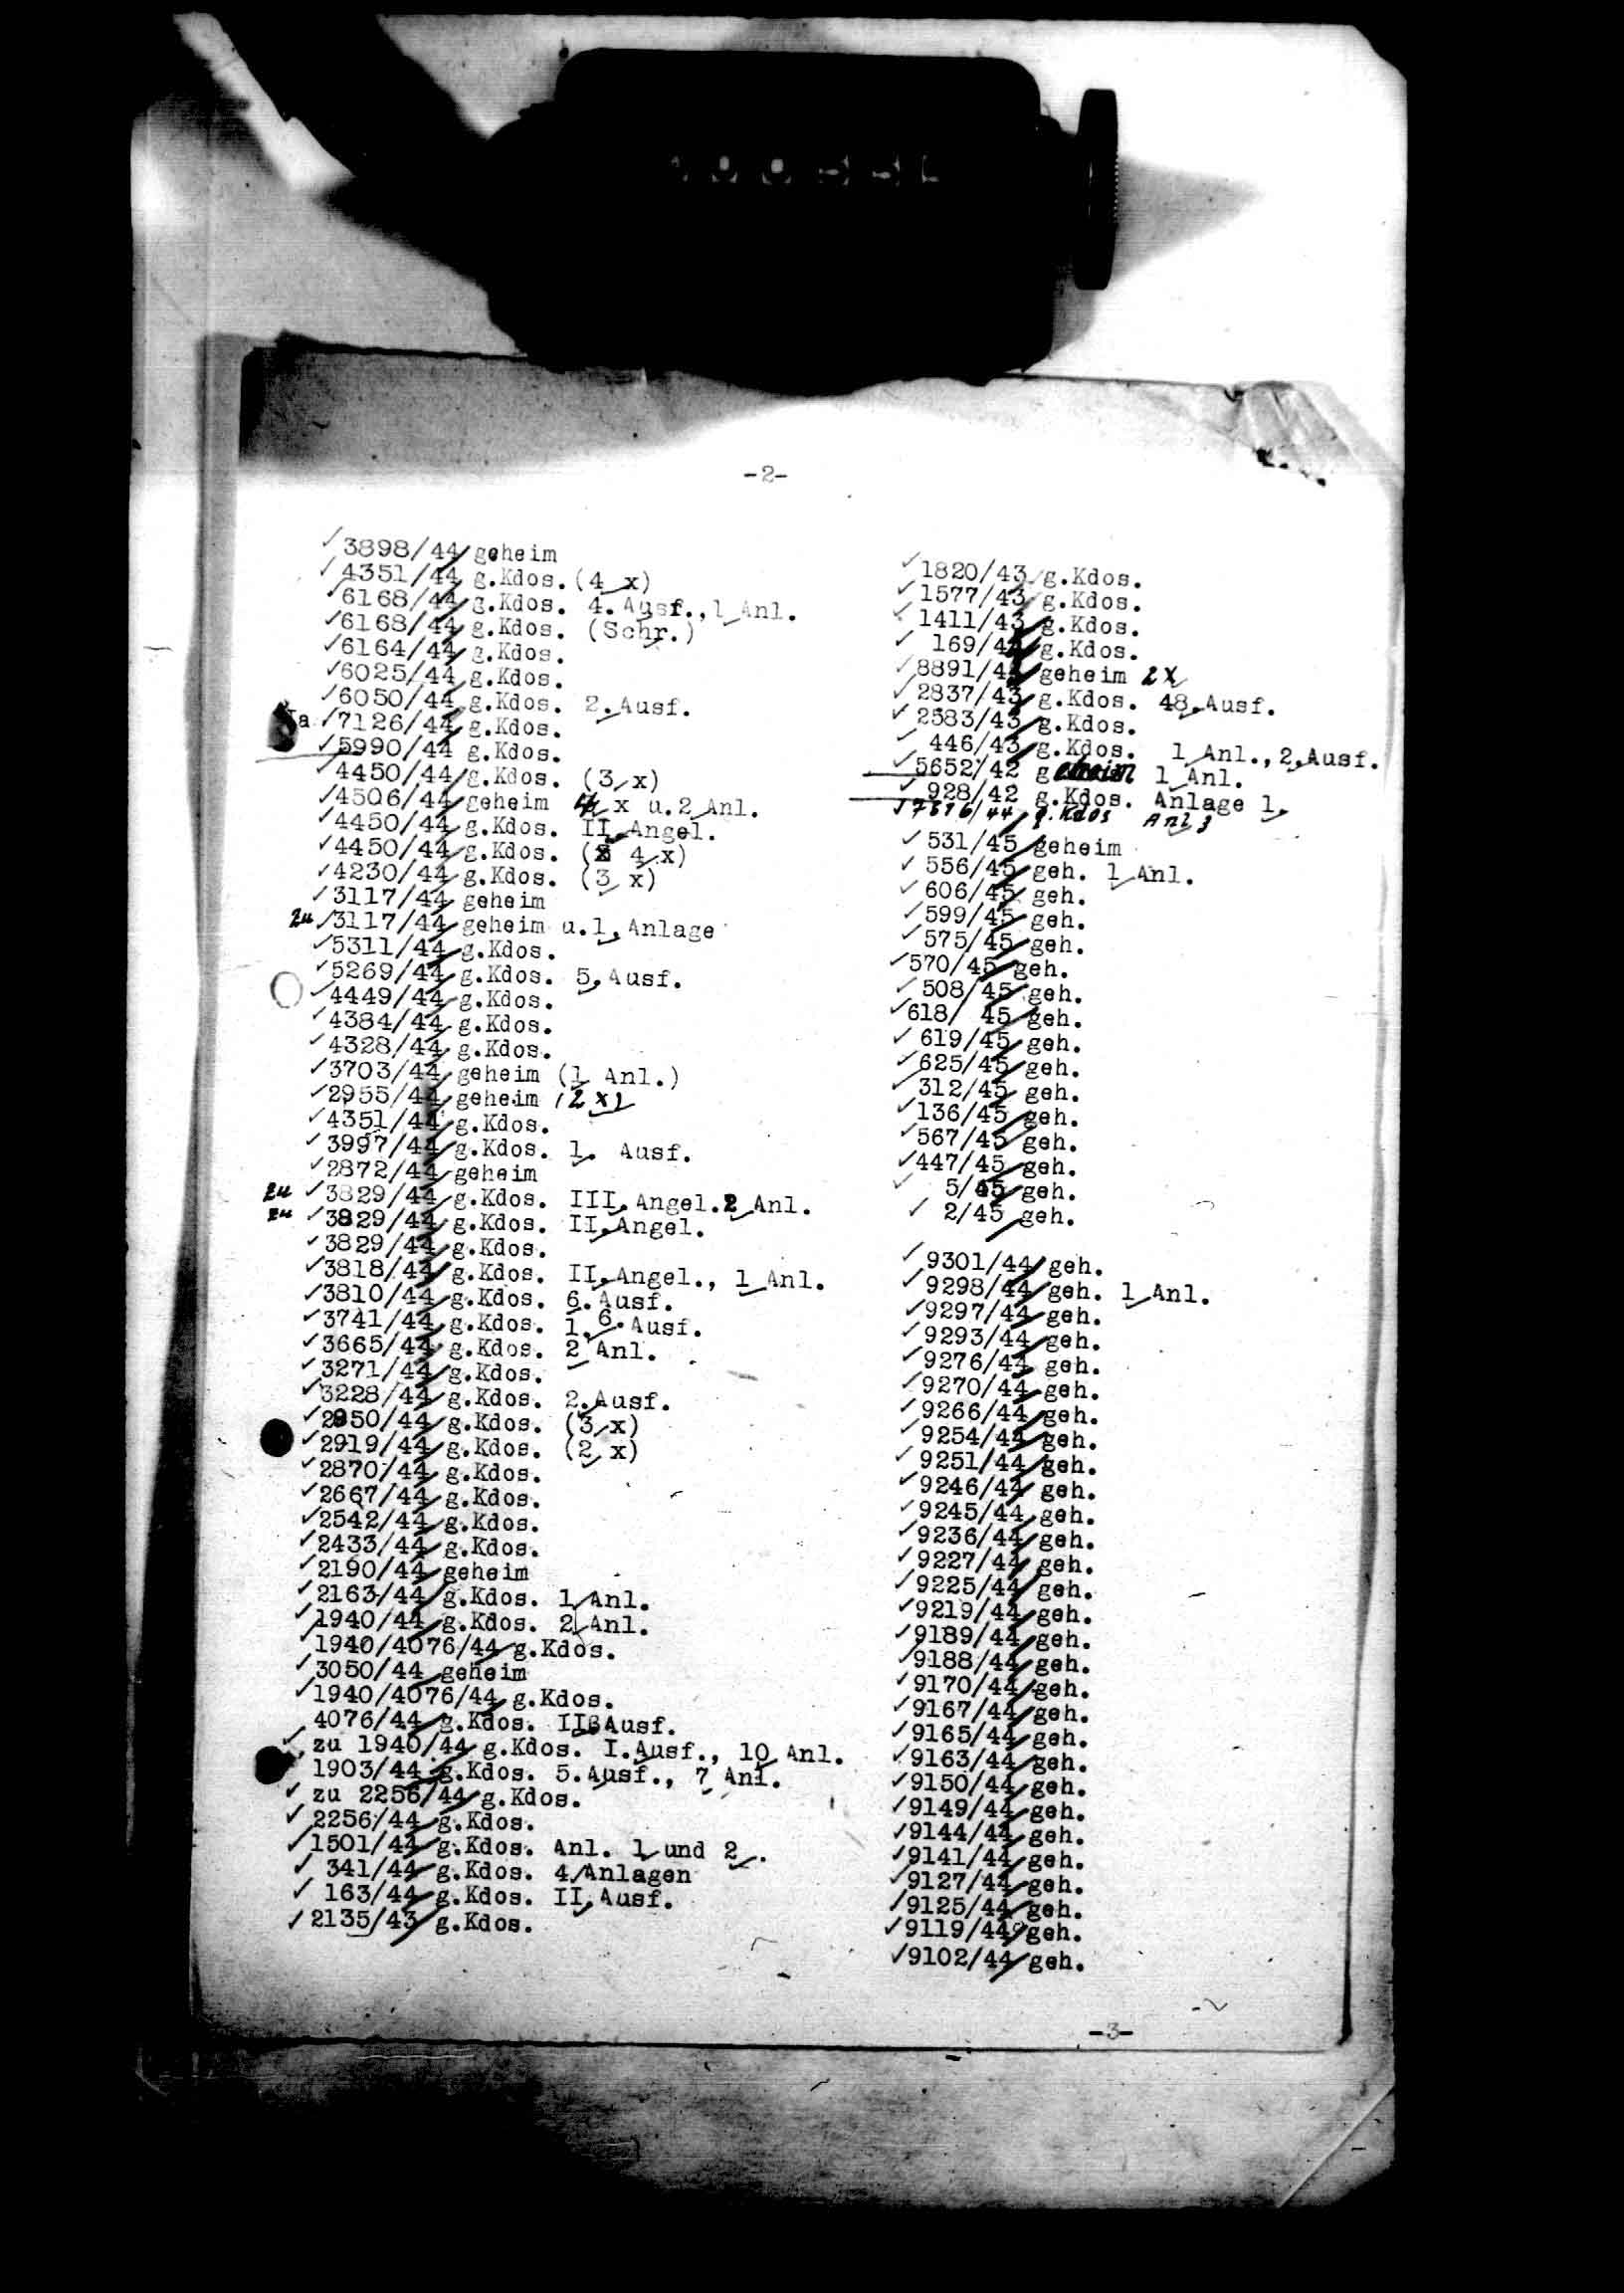 -2-
3898/44 geheim
4351/44 g.Kdos. (4 x)
6168/44 g.Kdos. 4. Ausf., 1 Anl.
6168/44 g.Kdos. (Schr.)
6164/44 g.Kdos.
6025/44 g.Kdos.
6050/44 g.Kdos. 2. Ausf.
7126/44 g.Kdos.
5990/44 g.Kdos.
4450/44 g.Kdos. (3 x)
4506/44 geheim x u. 2 Anl.
4450/44 g.Kdos. II. Angel.
4450/44 g.Kdos. (4 x)
4230/44 g.Kdos. (3 x)
3117/44 geheim
zu 3117/44 geheim u. 1. Anlage
5311/44 g.Kdos.
5269/44 g.Kdos. 5. Ausf.
4449/44 g.Kdos.
4384/44 g.Kdos.
4328/44 g.Kdos.
3703/44 geheim (1 Anl.)
2955/44 geheim (2 x)
4351/44 g.Kdos.
3997/44 g.Kdos. 1. Ausf.
2872/44 geheim
zu 3829/44 g.Kdos. III. Angel. 2 Anl.
zu 3829/44 g.Kdos. II. Angel.
3829/44 g.Kdos.
3818/44 g.Kdos. II. Angel., 1 Anl.
3810/44 g.Kdos. 6. Ausf.
3741/44 g.Kdos. 1. 6. Ausf.
3665/44 g.Kdos. 2 Anl.
3271/44 g.Kdos.
3228/44 g.Kdos. 2. Ausf.
2950/44 g.Kdos. (3 x)
2919/44 g.Kdos. (2 x)
2870/44 g.Kdos.
2667/44 g.Kdos.
2542/44 g.Kdos.
2433/44 g.Kdos.
2190/44 geheim
2163/44 g.Kdos. 1 Anl.
1940/44 g.Kdos. 2 Anl.
1940/4076/44 g.Kdos.
3050/44 geheim
1940/4076/44 g.Kdos.
4076/44 g.Kdos. II Ausf.
zu 1940/44 g.Kdos. I. Ausf., 10 Anl.
1903/44 g.Kdos. 5. Ausf., 7 Anl.
zu 2256/44 g.Kdos.
2256/44 g.Kdos.
1501/44 g.Kdos. Anl. 1 und 2.
341/44 g.Kdos. 4 Anlagen
163/44 g.Kdos. II. Ausf.
2135/43 g.Kdos.
1820/43 g.Kdos.
1577/43 g.Kdos.
1411/43 g.Kdos.
169/44 g.Kdos.
8891/44 geheim 2 X
2837/43 g.Kdos. 48. Ausf.
2583/43 g.Kdos.
446/43 g.Kdos. 1 Anl., 2. Ausf.
5652/42 geheim 1 Anl.
928/42 g.Kdos. Anlage 1.
g.Kdos Anl 3
531/45 geheim
556/45 geh. 1 Anl.
606/45 geh.
599/45 geh.
575/45 geh.
570/45 geh.
508/45 geh.
618/ 45 geh.
619/45 geh.
625/45 geh.
312/45 geh.
136/45 geh.
567/45 geh.
447/45 geh.
5/45 geh.
2/45 geh.
9301/44 geh.
9298/44 geh. 1 Anl.
9297/44 geh.
9293/44 geh.
9276/44 geh.
9270/44 geh.
9266/44 geh.
9254/44 geh.
9251/44 geh.
9246/44 geh.
9245/44 geh.
9236/44 geh.
9227/44 geh.
9225/44 geh.
9219/44 geh.
9189/44 geh.
9188/44 geh.
9170/44 geh.
9167/44 geh.
9165/44 geh.
9163/44 geh.
9150/44 geh.
9149/44 geh.
9144/44 geh.
9141/44 geh.
9127/44 geh.
9125/44 geh.
9119/44 geh.
9102/44 geh.
-3-